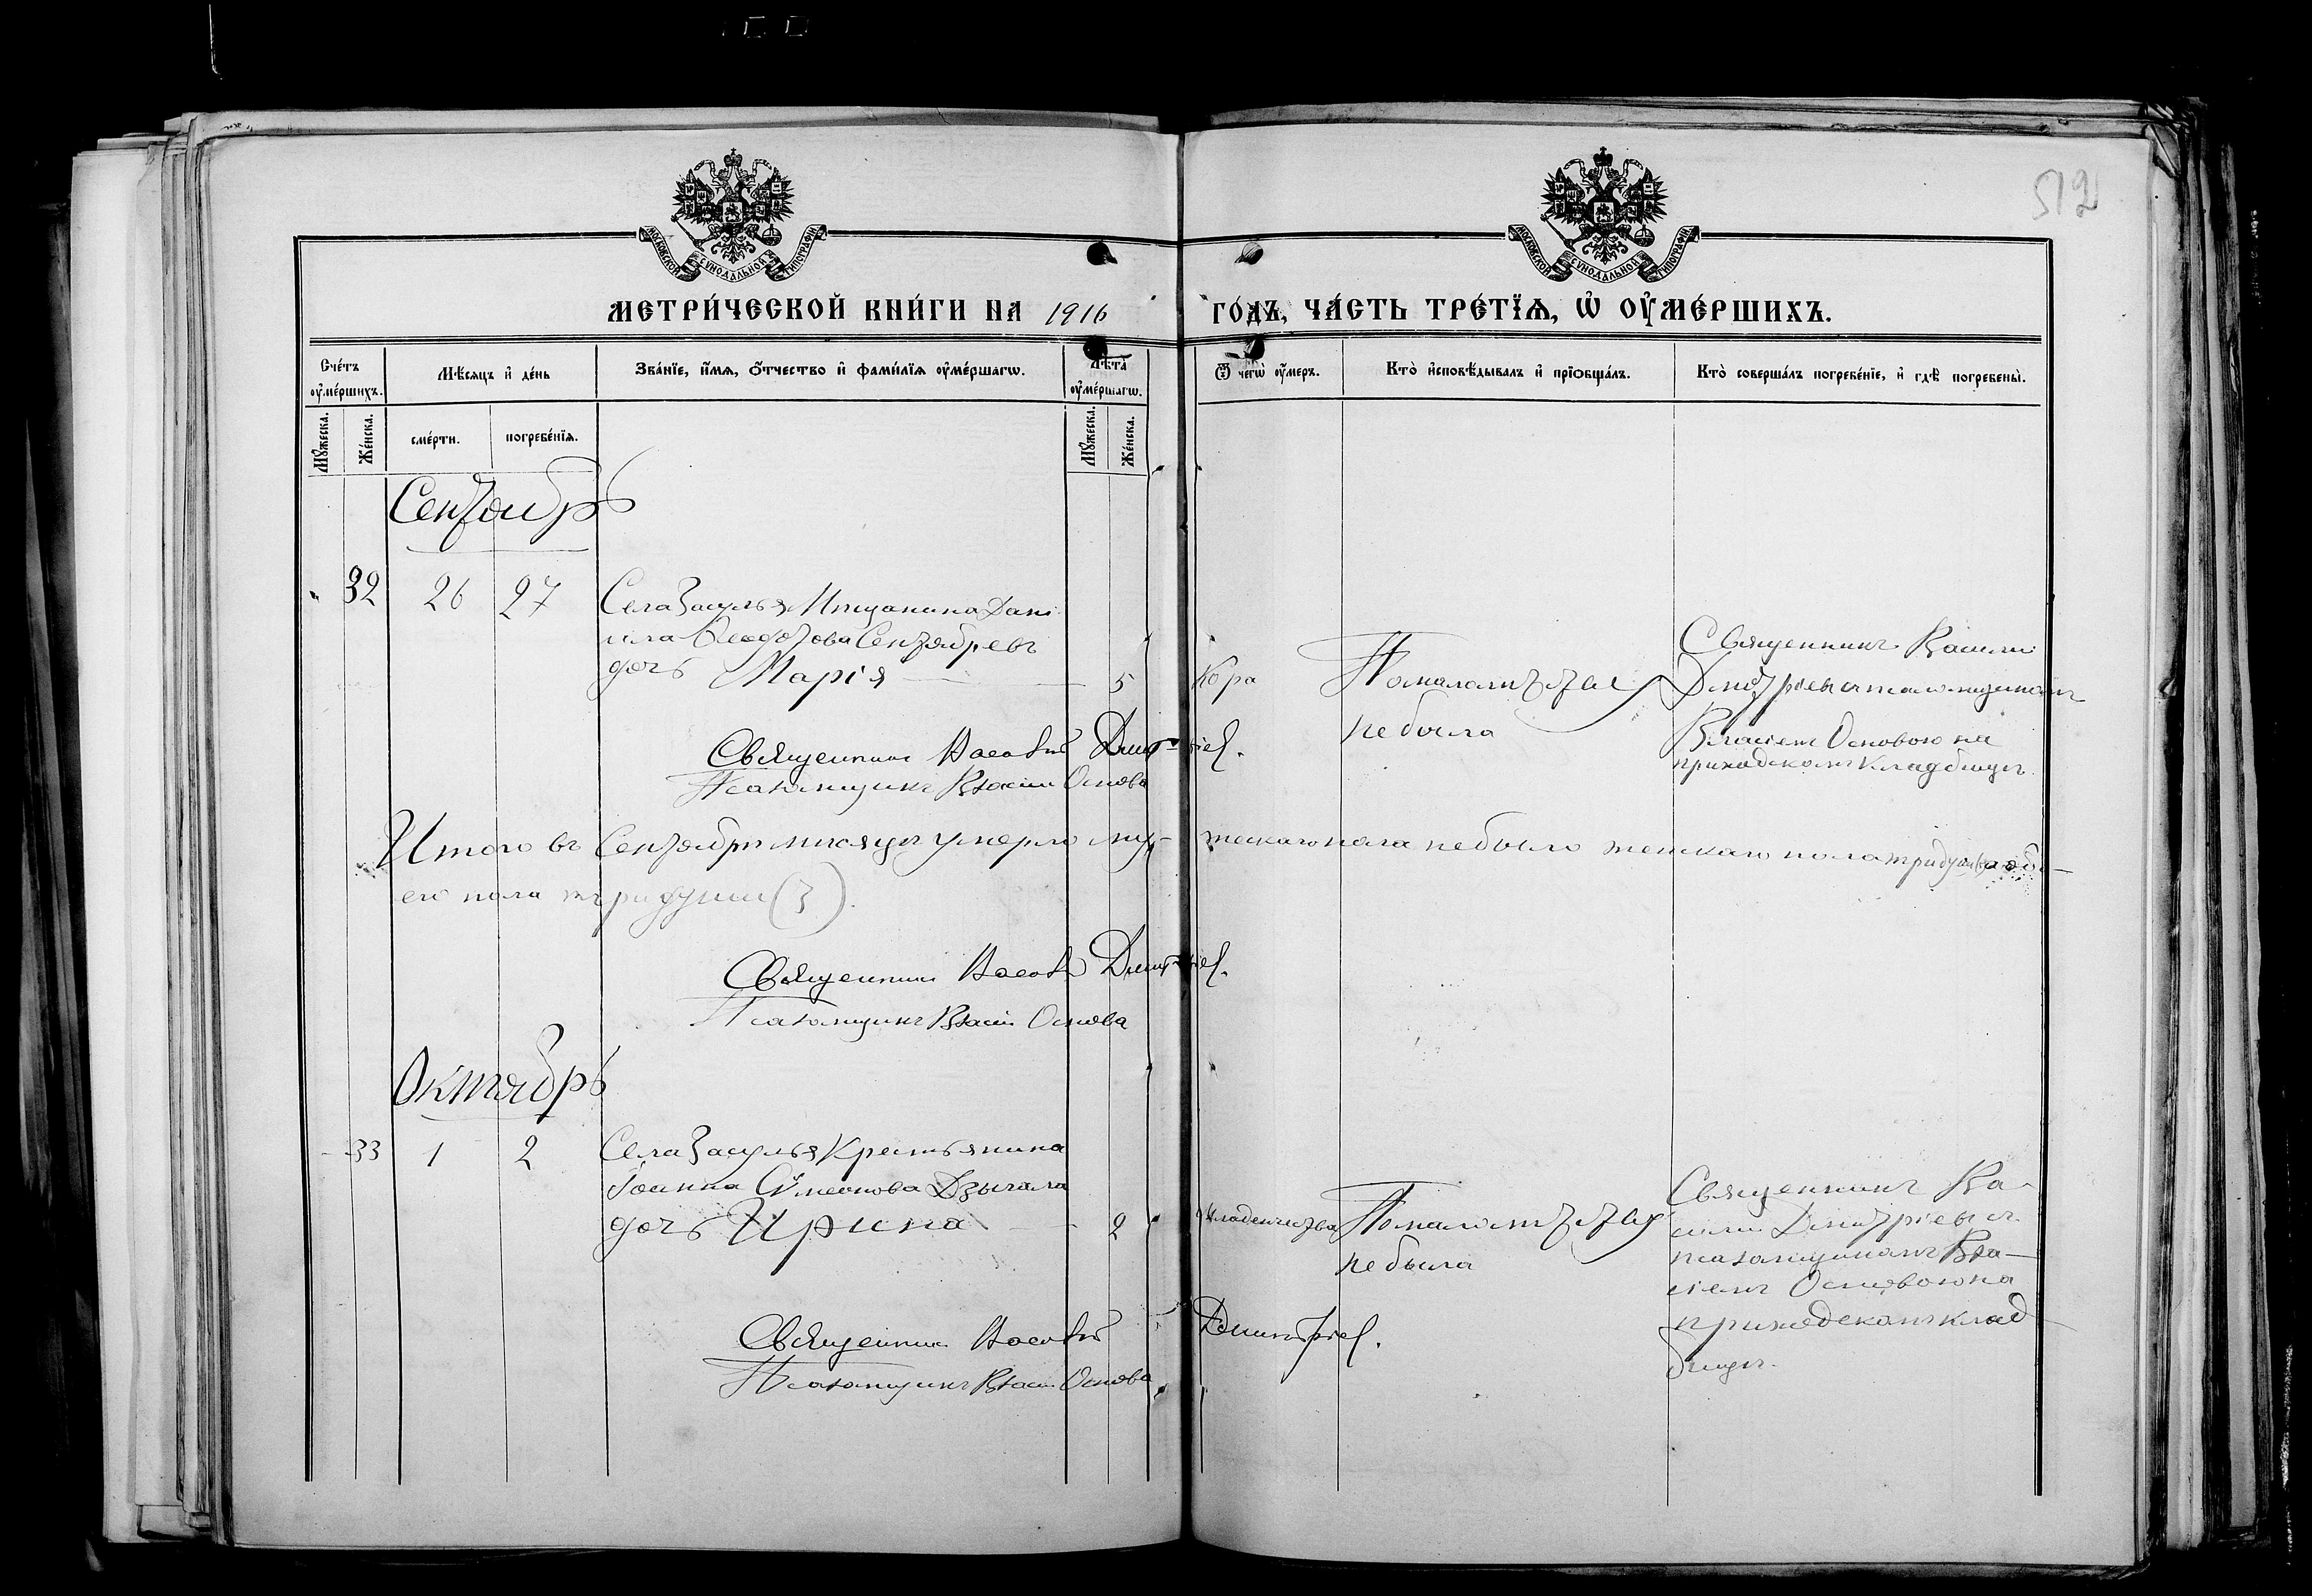 512
МОСКОВСКОЙ СѴНОДАЛЬНОЙ ТИПОГРАФІИ
МОСКОВСКОЙ СѴНОДАЛЬНОЙ ТИПОГРАФІИ
МЕТРИ́ЧЕСКОЙ КНИ́ГИ НА 1916 ГО́ДЪ, ЧА́СТЬ ТРЕ́ТЇѦ, Ѡ ОУ҆МЕ́РШИХЪ.
Сче́тъ оу҆ме́ршихъ.
Мꙋ́жеска.
Же́нска.
Мѣ́сѧцъ и҆ де́нь
сме́рти.
погребе́нїѧ.
Зва́нїе, и҆́мѧ, ѻ҆́тчество и҆ фами́лїѧ оу҆ме́ршагѡ.
Лѣ́та оу҆ме́ршагѡ.
Мꙋ́жеска.
Же́нска.
Ѿ чегѡ̀ оу҆́меръ.
Кто̀ и҆сповѣ́дывалъ и҆ прїѡбща́лъ.
Кто̀ соверша́лъ погребе́нїе, и҆ гдѣ̀ погребены̀.
Сентябрь
32 26 27 Села Засулья Мѣщанина Дані
ила Ѳеодотова Сентябревъ
дочь Марія 5
Кора
По малолѣтству
не была
Священникъ Василій
Дмитріевъ съ псаломщикомъ
Власіемъ Основою на
приходскомъ кладбищѣ.
Священникъ Василій Дмитріев.
Псаломщикъ Власій Основа
Итого въ Сентябрѣ мѣсяцѣ умерло му-
жескаго пола не было женскаго пола три души а обо-
его пола три души (3).
Священникъ Василій Дмитріев.
Псаломщикъ Власій Основа
Октябрь
33 1 2 Села Засулья Крестьянина
Іоанна Сѵмеонова Дзыгала
дочь Ирина 2
Младенчества
По малолѣтству
не была
Священникъ Ва-
силій Дмитріевъ съ
псаломщикомъ Вла-
сіемъ Основою на
приходскомъ клад-
бищѣ.
Священникъ Василій Дмитріев.
Псаломщикъ Власій Основа